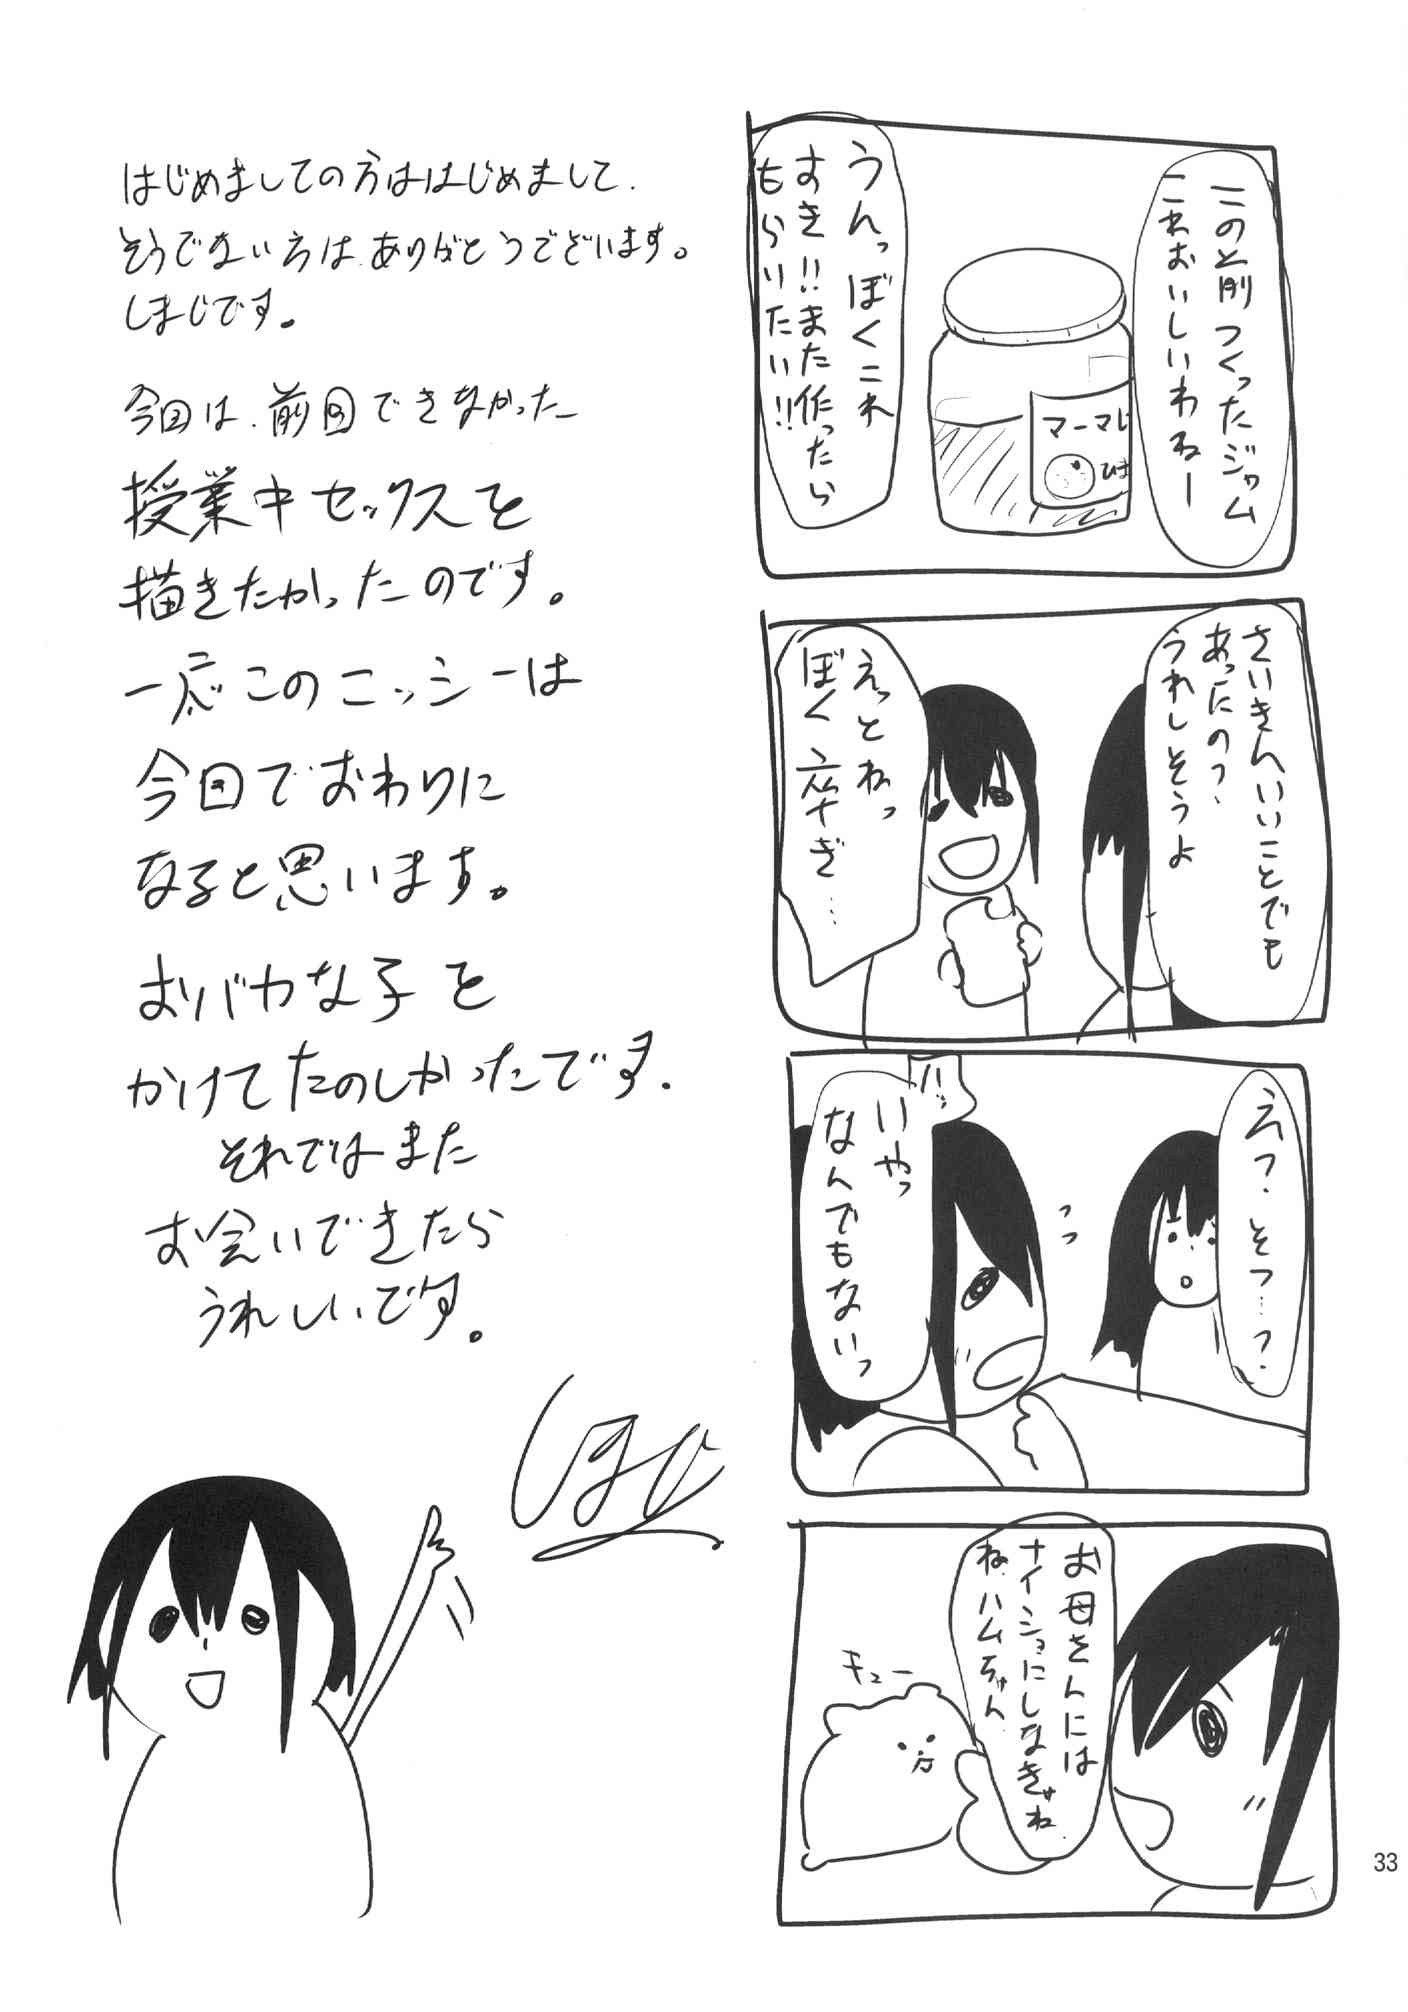 この前つくったジャム
これおいしいわねー
うんっぼくこれ
すき!!また作ったら
もらいたい!!
マーマレ
ひま
さいきんいいことでも
あったの?
うれしそうよ
えっとねっ
ぼく卒ぎ…
えっ?そつ…?
ハッ
いやっ
なんでもないっ
お母さんには
ナイショにしなきゃね
ね、ハムちゃん
キュー
はじめましての方ははじめまして、
そうでない方は、ありがとうございます。
しまじです。
今回は、前回できなかった
授業中セックスを
描きたかったのです。
一応このニッシーは
今回でおわりに
なると思います。
おバカな子を
かけてたのしかったです。
それではまた
お会いできたら
うれしいです。
しまじ
33